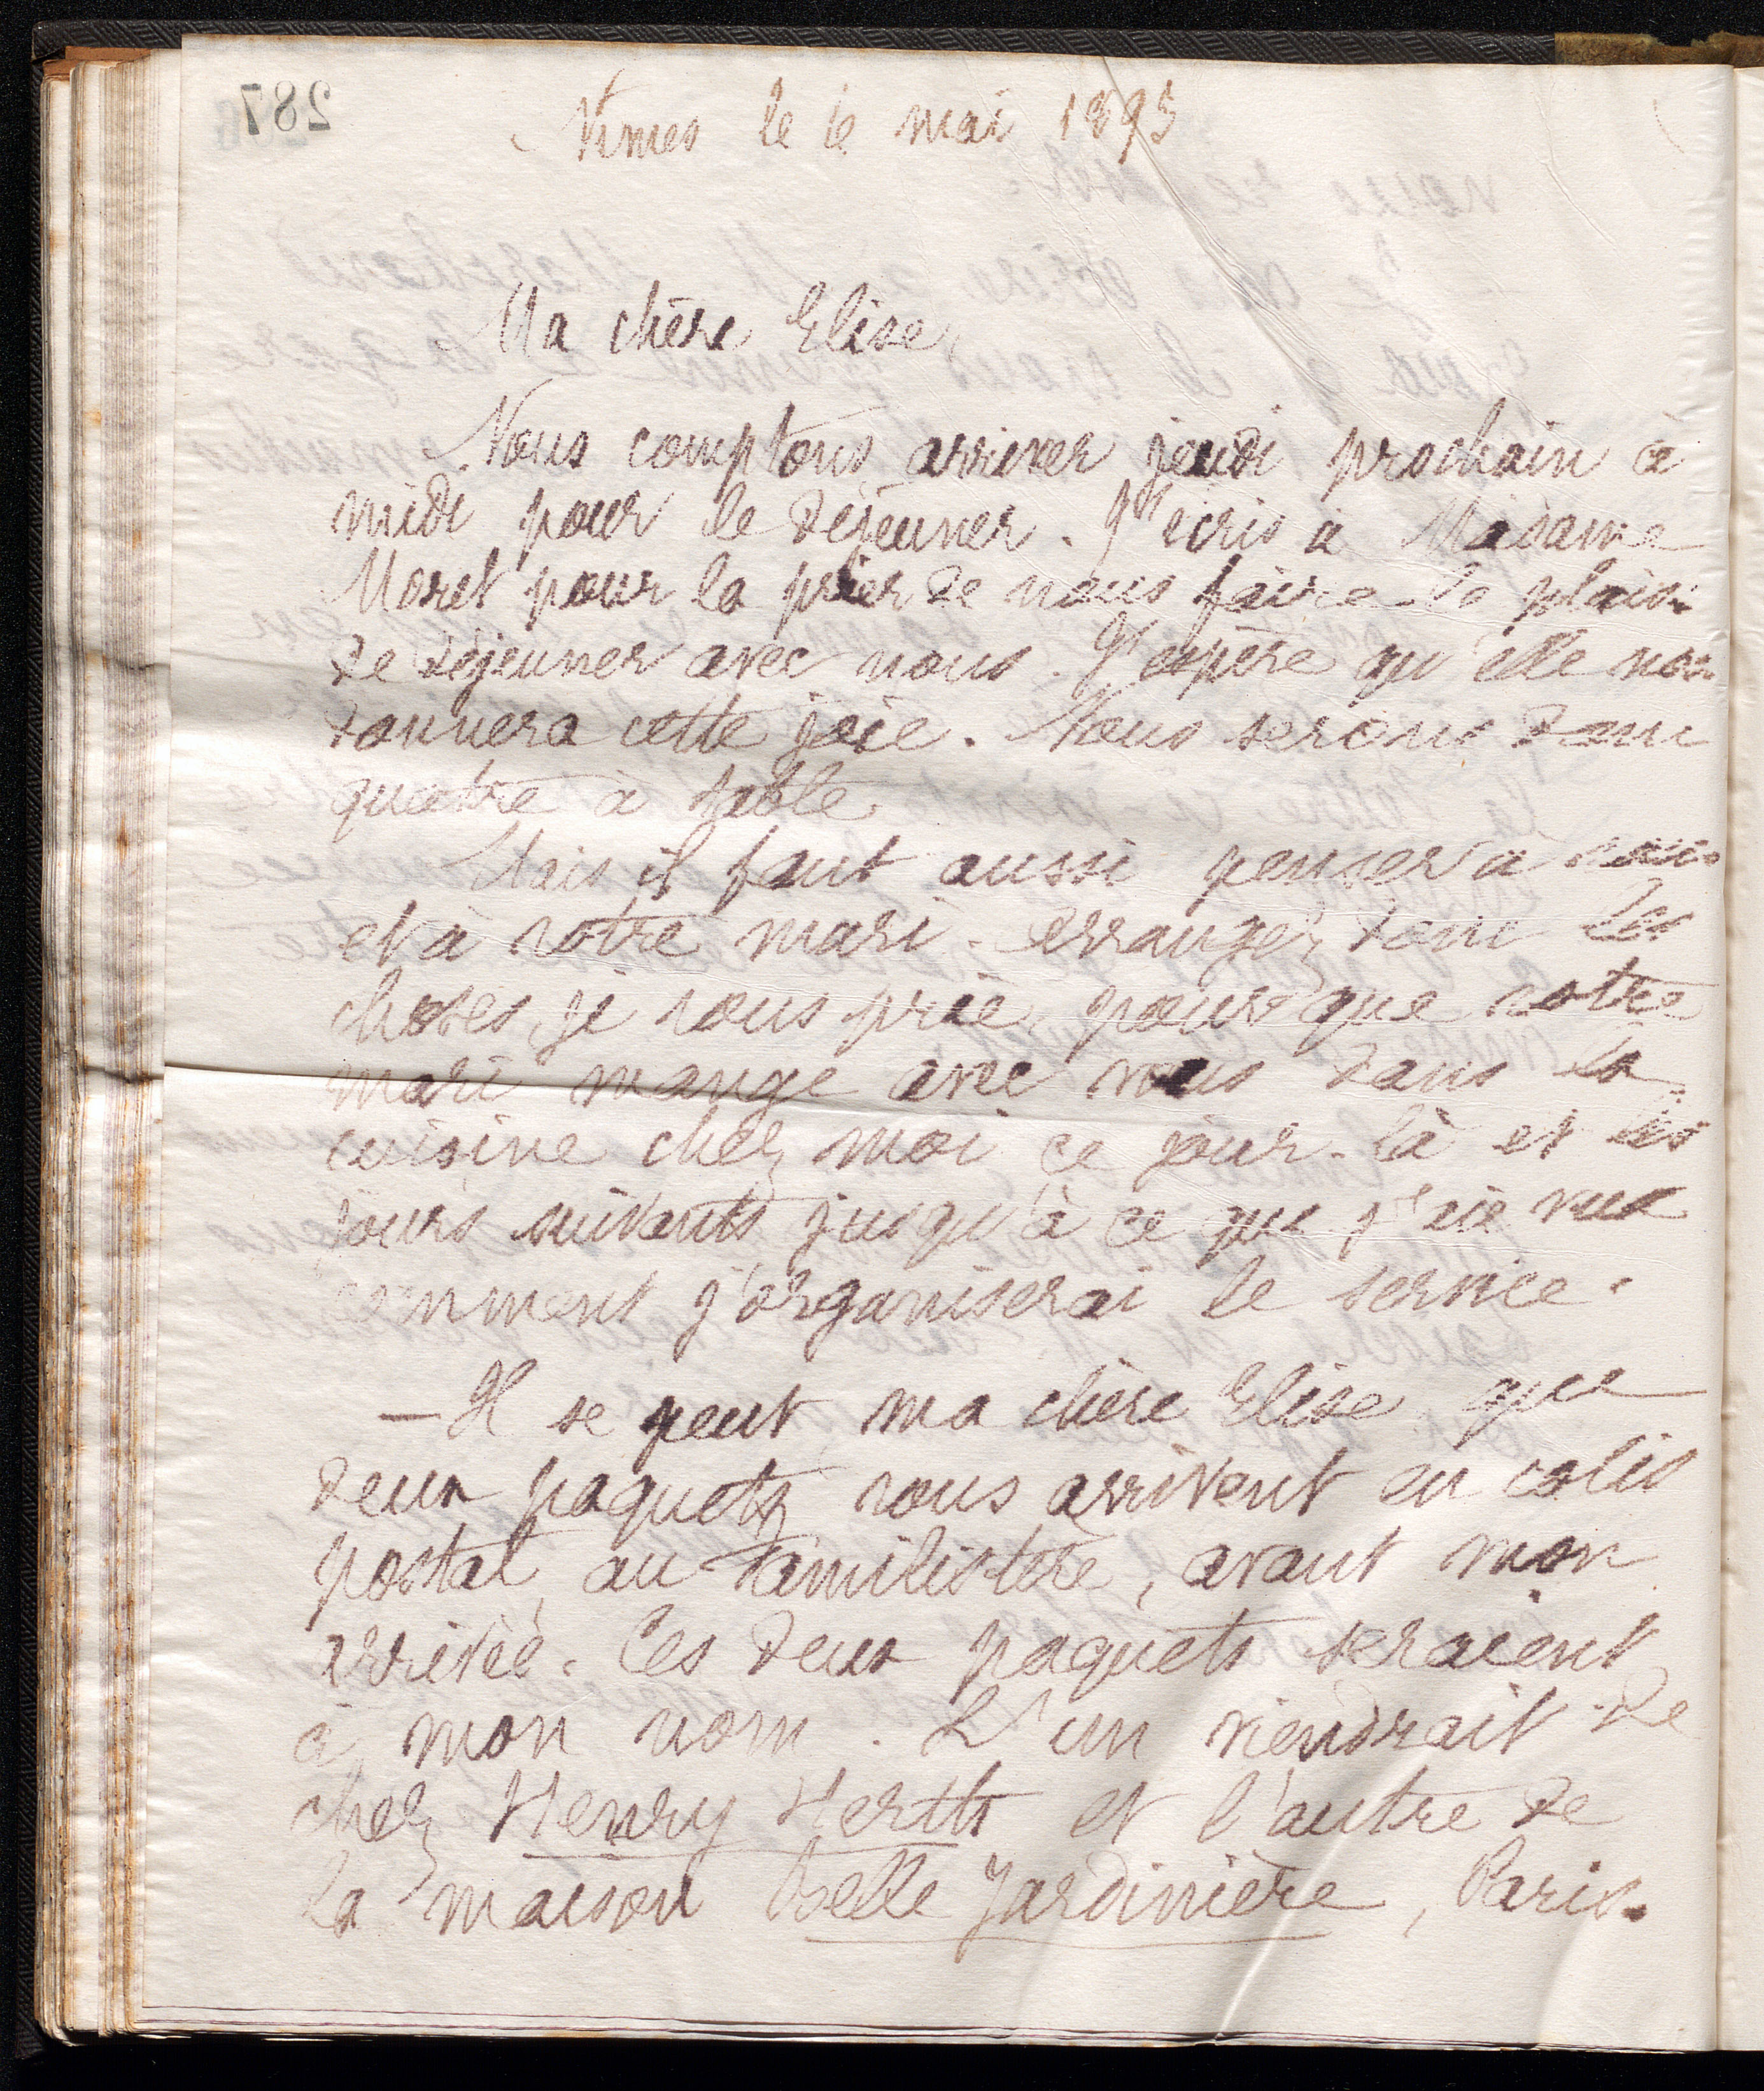 287
Nimes le 6 mai 1895
Ma chère Elise,
Nous comptons arriver jeudi prochain à
midi pour le déjeuner. J'écris à Madame
Moret pour la prier de nous faire le plaisir
de déjeuner avec nous. J'espère qu'elle nous
donnera cette joie. Nous serons donc
quatre à table.
Mais il faut aussi penser à vous
et à votre mari. Arrangez donc les
choses, je vous prie, pour que votre
mari mange avec vous dans la
cuisine chez moi ce jour-là et les
jours suivants jusqu'à ce que j'aie vu
comment j'organiserai le service.
— Il se peut, ma chère Elise, que
deux paquets vous arrivent en colis
postal, au Familistère, avant mon
arrivée. Ces deux paquets seraient
à mon nom. L'un viendrait de
chez Henry et l'autre de
la maison Belle Jardinière, Paris.